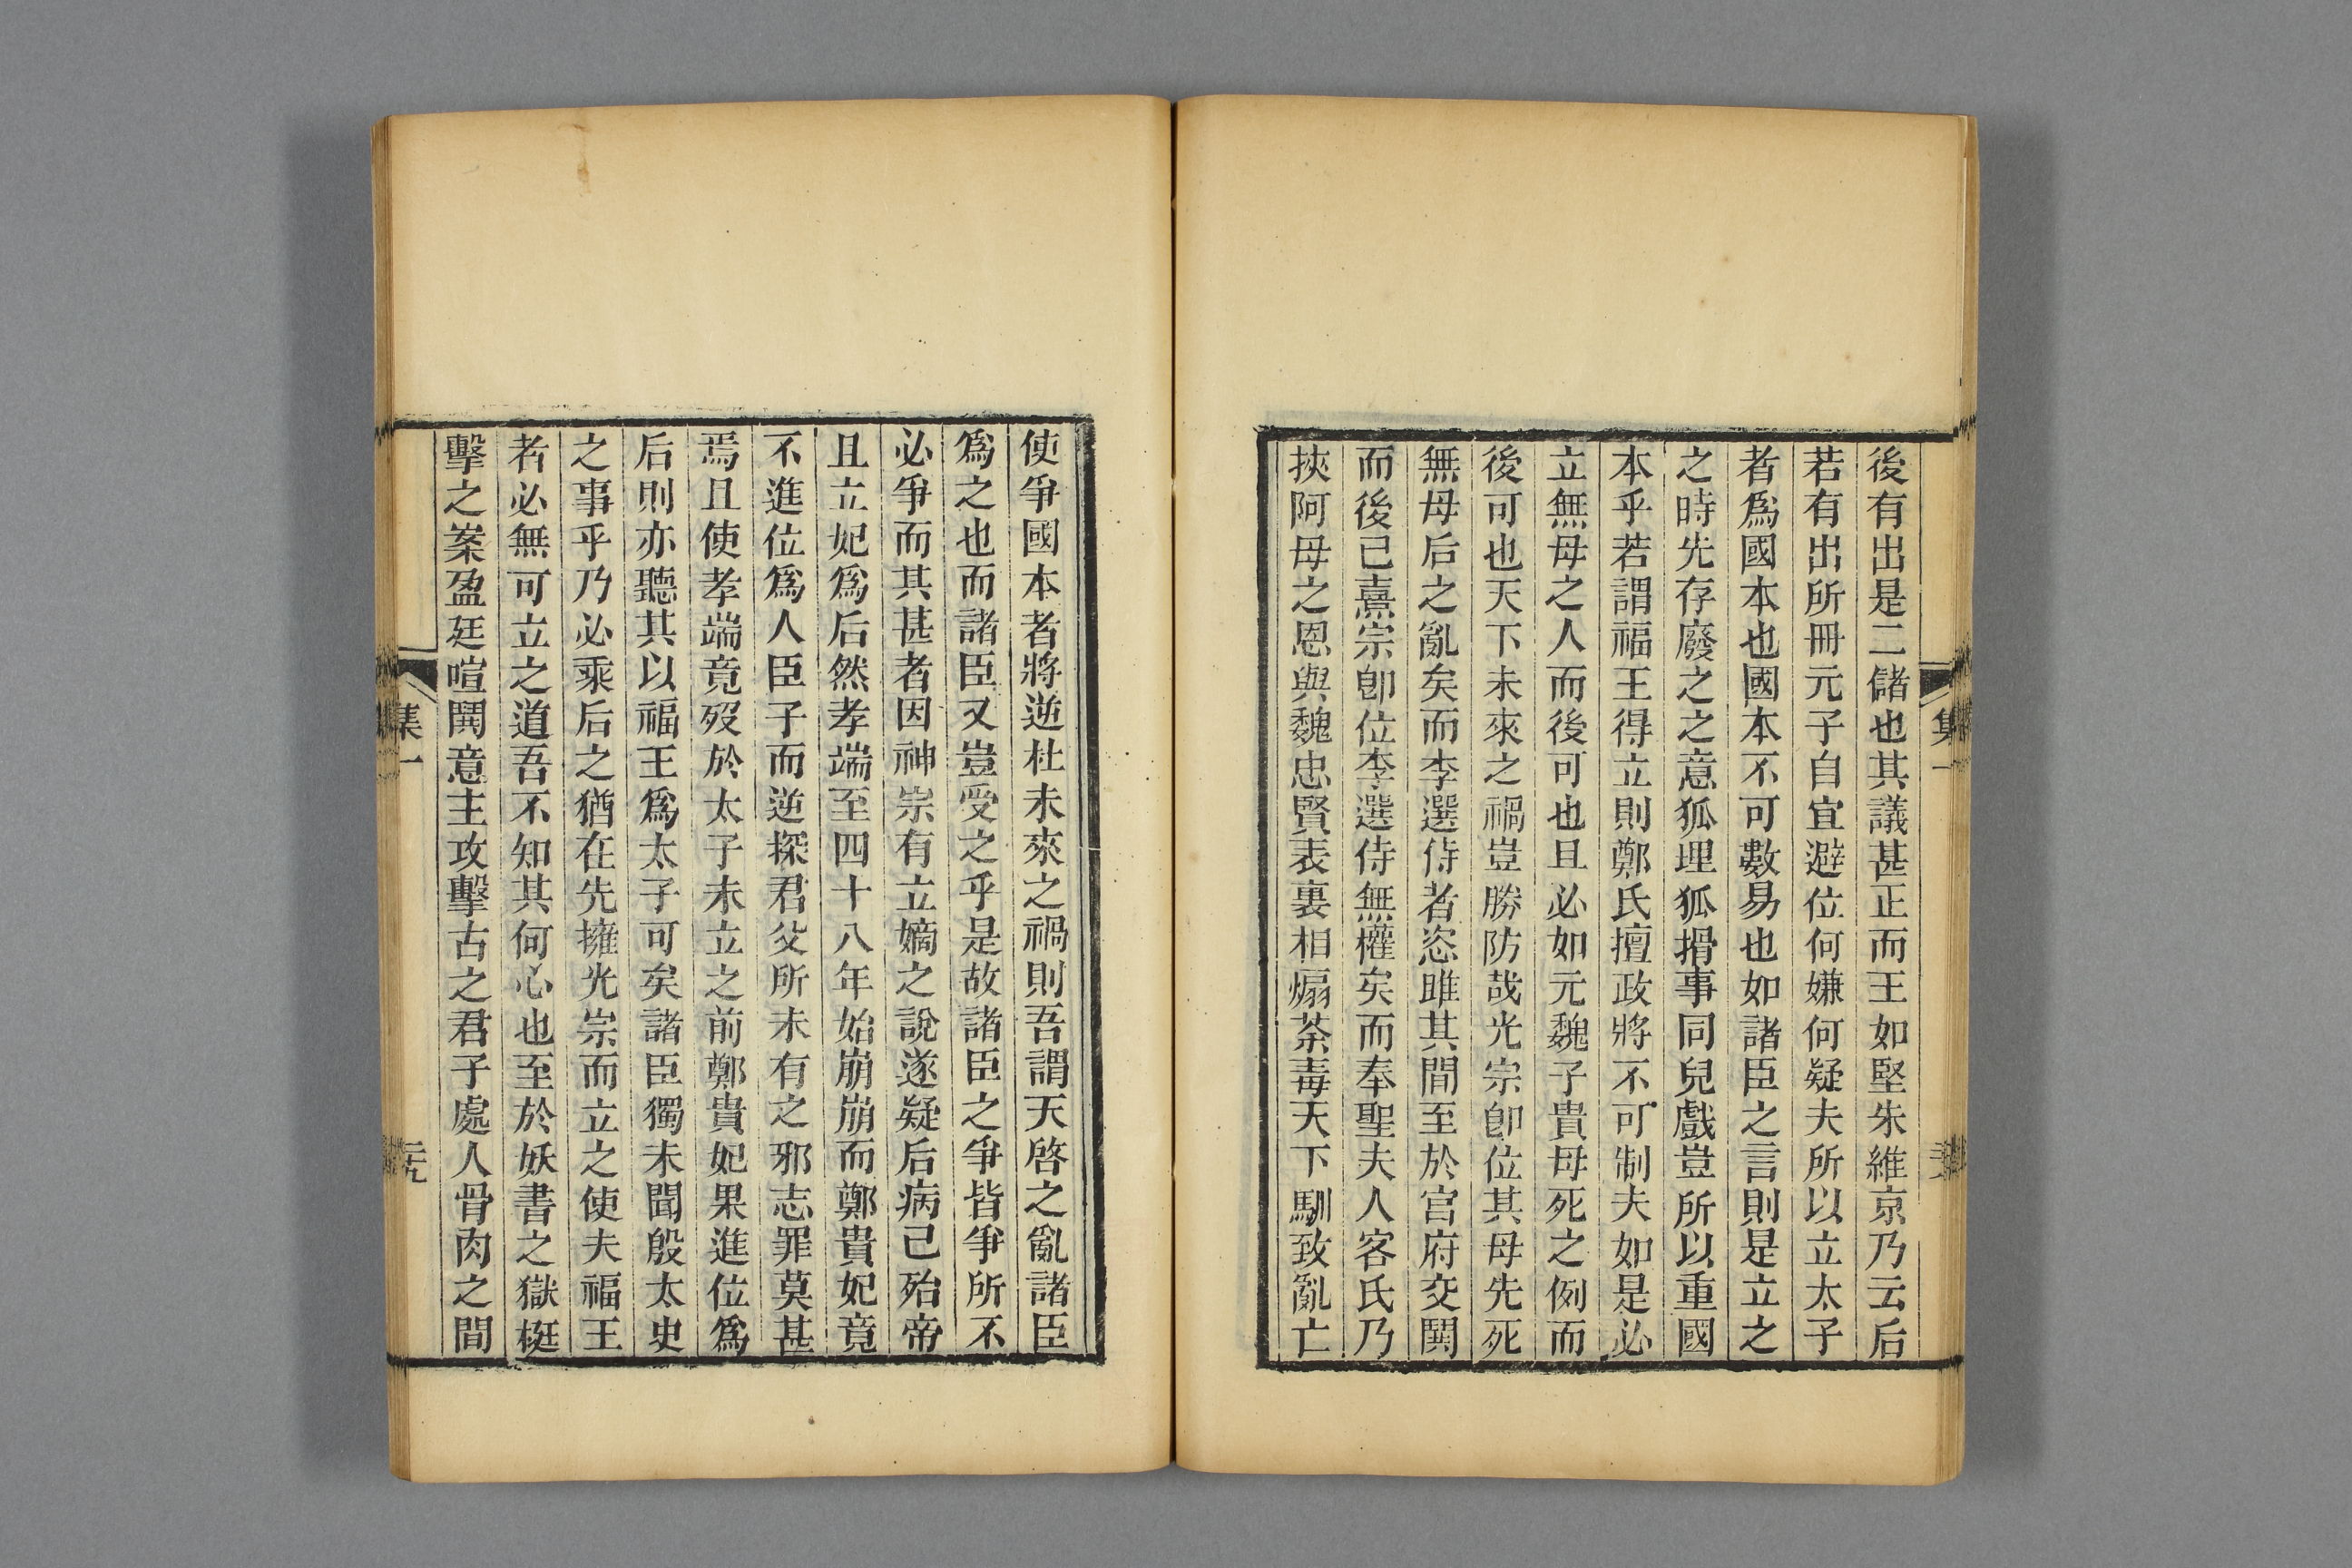 後有出是二儲也其議甚正而王如堅朱維京乃云后
若有出所冊元子自宜避位何嫌何疑夫所以立太子
者爲國本也國本不可數易也如諸臣之言則是立之
之時先存廢之之意狐埋狐搰事同兒戲豈所以重國
本乎若謂福王得立則鄭氏擅政將不可制夫如是必
立無母之人而後可也且必如元魏子貴母死之例而
後可也天下未來之禍豈勝防哉光宗卽位其母先死
無母后之亂矣而李選侍者恣雎其間至於宮府交鬨
而後已熹宗卽位李選侍無權矣而奉聖夫人客氏乃
挾阿母之恩與魏忠賢表裏相煽荼毒天下馴致亂亡
集一
使爭國本者將逆杜未來之禍則吾謂天啓之亂諸臣
爲之也而諸臣又豈受之乎是故諸臣之爭皆爭所不
必爭而其甚者因神宗有立嫡之說遂疑后病已殆帝
且立妃爲后然孝端至四十八年始崩崩而鄭貴妃竟
不進位爲人臣子而逆探君父所未有之邪志罪莫甚
焉且使孝端竟歿於太子未立之前鄭貴妃果進位爲
后則亦聽其以福王爲太子可矣諸臣獨未聞殷太史
之事乎乃必乘后之猶在先擁光宗而立之使夫福王
者必無可立之道吾不知其何心也至於妖書之獄梃
擊之案盈廷喧鬨意主攻擊古之君子處人骨肉之間
集一